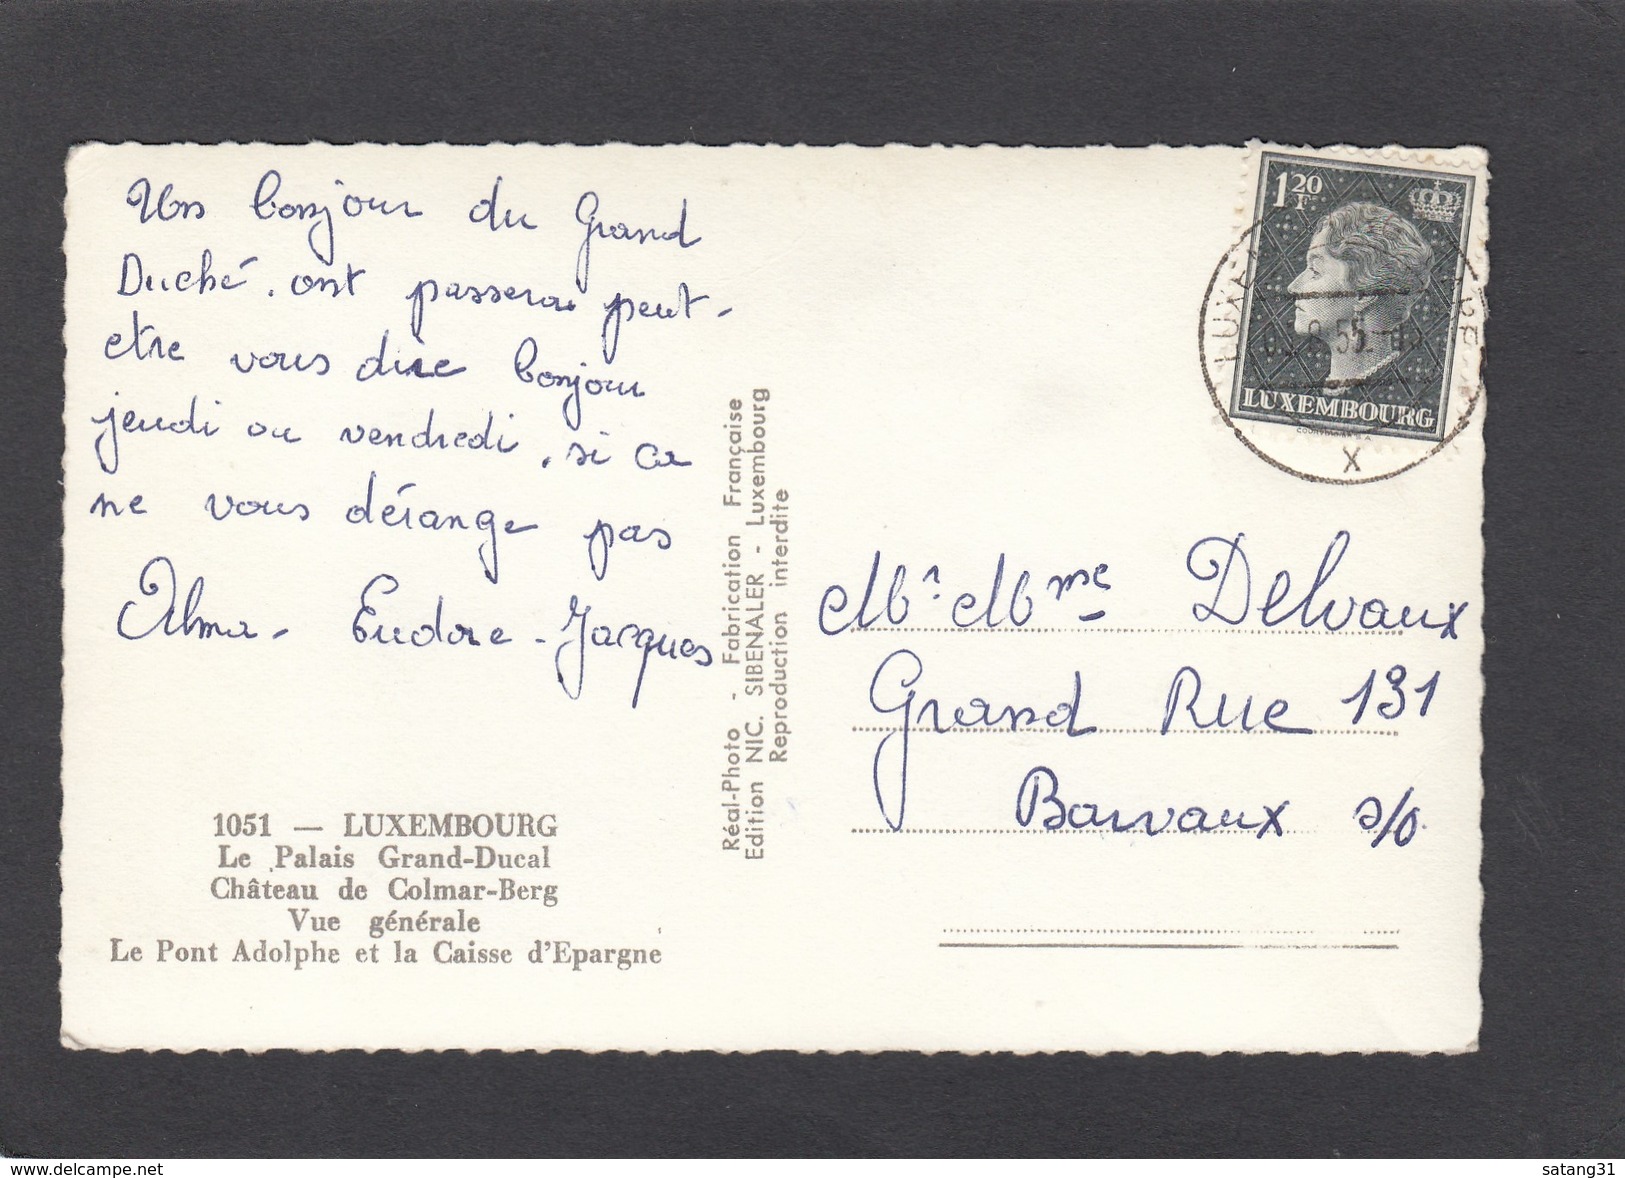 Un bonjour du Grand
Duché. ont passerai peut-
etre vous dire bonjour
jeudi ou vendredi, si ca
ne vous dérange pas
Alma - Eudore - Jacques
1051 — LUXEMBOURG
Le Palais Grand-Ducal
Château de Colmar-Berg
Vue générale
Le Pont Adolphe et la Caisse d'Epargne
Réal-Photo - Fabrication Française
Edition NIC. SIBENALER - Luxembourg
Reproduction interdite
1 20 F
LUXEMBOURG
X
Mr. Mme Delvaux
Grand Rue 131
Barvaux s/o.
delcampe.net
satang31